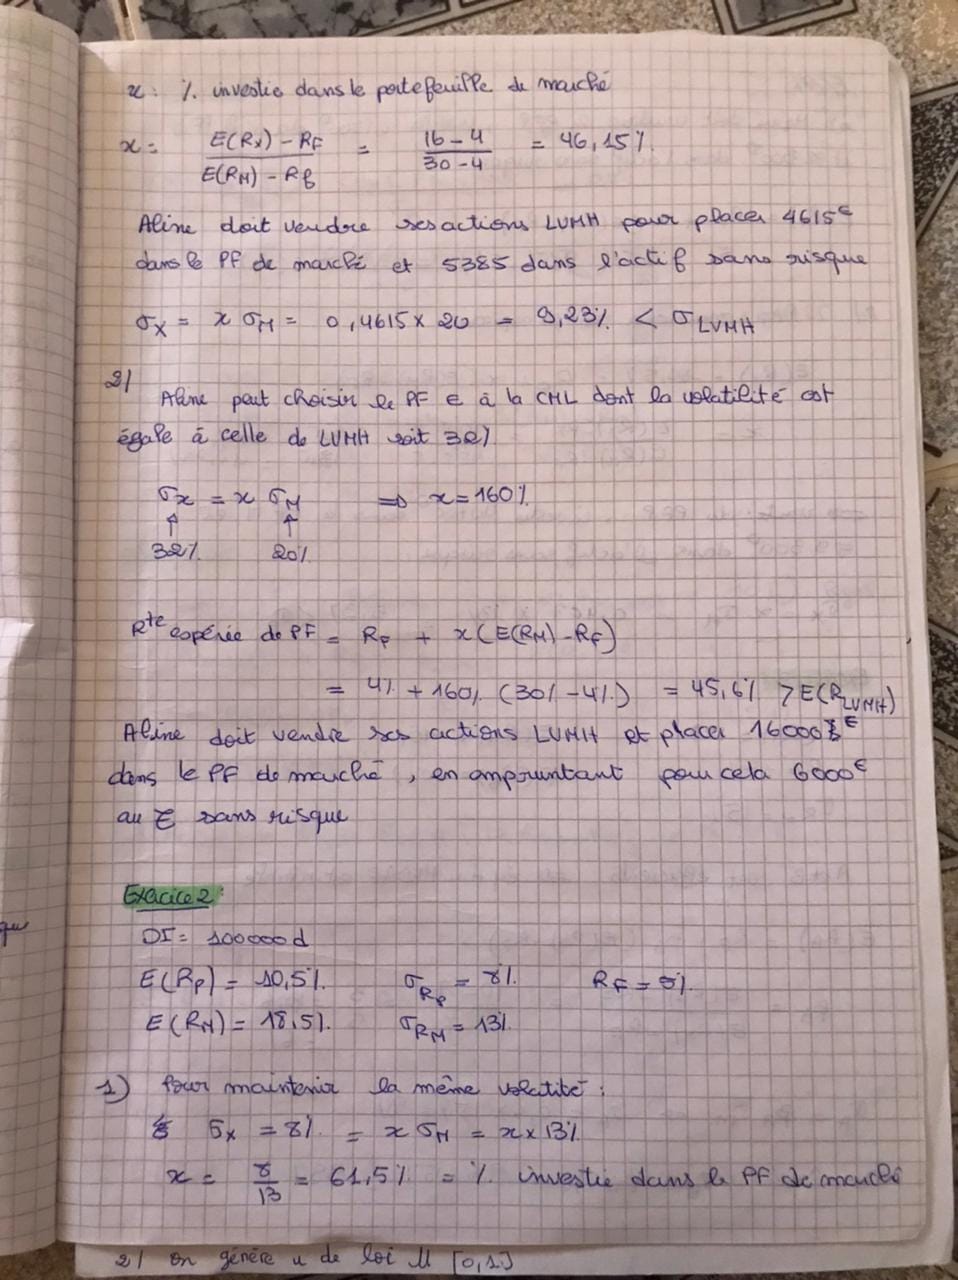 x : % investie dans le portefeuille de marché
x = (E(Rx) - RF) / (E(RM) - Rf) = (16 - 4) / (30 - 4) = 46,15%
Aline doit vendre ses actions LVMH pour placer 4615€
dans le PF de marché et 5385 dans l'actif sans risque
σx = x σM = 0,4615 x 20 = 9,23% < σLVMH
2/
Aline peut choisir le PF ∈ à la CML dont la volatilité est
égale à celle de LVMH soit 32%
σx = x σM ⇒ x = 160%
↑ ↑
32% 20%
Rte espérée de PF = RF + x(E(RM) - RF)
= 4% + 160% (30% - 4%) = 45,6% > E(RLVMH)
Aline doit vendre ses actions LVMH et placer 16000 €
dans le PF de marché, en empruntant pour cela 6000€
au sans risque
Exercice 2 :
DI = 100000d
E(Rp) = 10,5% σRp = 8% RF = 5%
E(RM) = 18,5% σRM = 13%
1) Pour maintenir la même volatité :
σx = 8% = x σM = x x 13%
x = 8/13 = 61,5% = % investie dans le PF de marché
2/ on génére u de loi U [0,1]